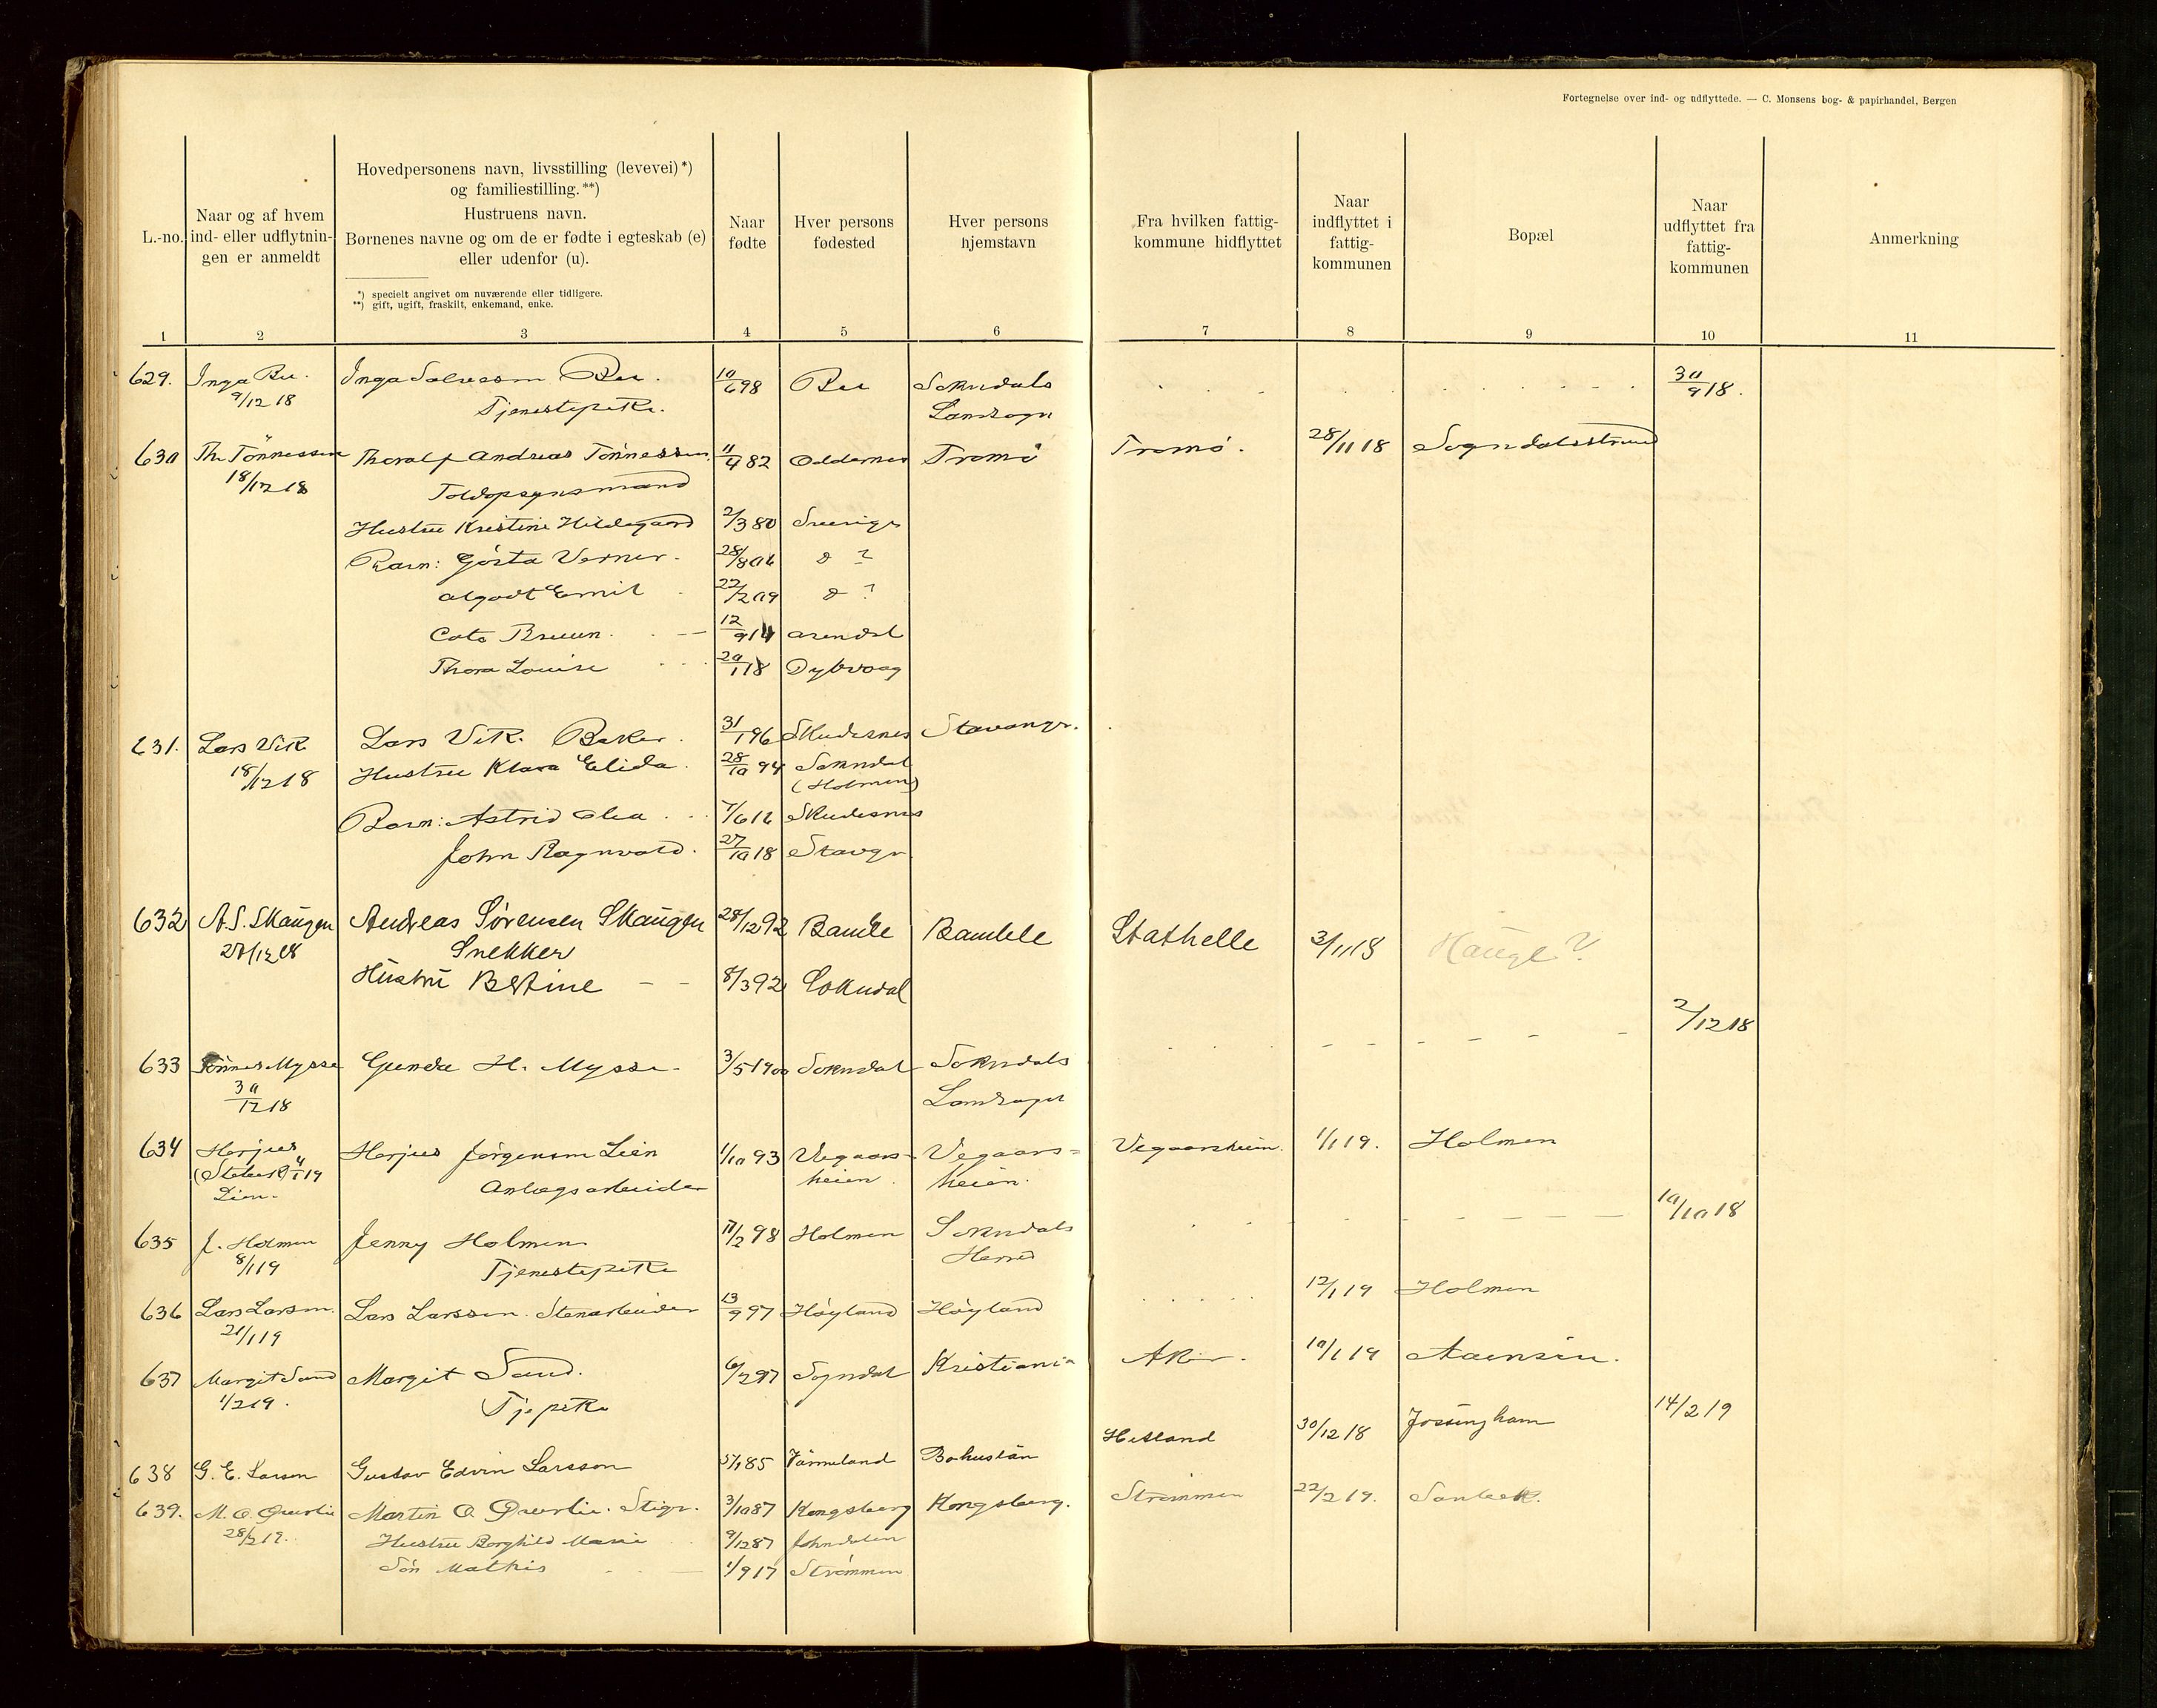 Fortegnelse over ind- og udflyttede. — C. Monsens bog- & papirhandel, Bergen
L.-no.
Naar og af hvem
ind- eller udflytnin-
gen er anmeldt
Hovedpersonens navn, livsstilling (levevei)*)
og familiestilling.**)
Hustruens navn.
Børnenes navne og om de er fødte i egteskab (e)
eller udenfor (u).
*) specielt angivet om nuværende eller tidligere.
**) gift, ugift, fraskilt, enkemand, enke.
Naar
fødte
Hver persons
fødested
Hver persons
hjemstavn
Fra hvilken fattig-
kommune hidflyttet
Naar
indflyttet i
fattig-
kommunen
Bopæl
Naar
udflyttet fra
fattig-
kommunen
Anmerkning
1 2 3 4 5 6 7 8 9 10 11
629. Inga Bu. Inga Salvesen Bu. 10/6 98 Bu Sokndals 30/9 18.
9/12 18 Tjenestepike. Landsogn
630 Th. Tönnessen Thoralf Andreas Tönnessen 11/4 82 Oddernes Tromö Tromö. 28/11 18 Sogndalsstrand
18/12 18 Toldopsynsmand
Hustru Kristine Hildegaard 2/3 80 Sverige
Barn: Gösta Verner. 28/8 06 d ?
Algodt Emil 22/2 09 d ?
Cato Bruun. 12/9 14 Arendal
Thora Louise 20/1 18 Dybvaag
631. Lars Vik Lars Vik. Baker. 31/1 96 Skudesnes Stavanger.
18/12 18 Hustru Klara Elida. 28/10 94 Sokndal
(Holmen)
Barn: Astrid Olea 7/6 16 Skudesnes
John Ragnvald. 27/10 18 Stavgr.
632 A.S. Skaugen Andreas Sörensen Skaugen 28/12 92 Bamle Bamble Stathelle 3/11 18 Hauge?
Snekker
Hustru Bertine 8/3 92 Sokndal
2/12 18
633 Tönnes Mysse Gunda H. Mysse. 3/5 1900 Sokndal Sokndals
30/12 18 Landsogn
634 Herjus Herjus Jörgensen Lien 1/10 93 Vegaars- Vegaars- Vegaarsheien. 1/1 19. Holmen
4/1 19 Anlegsarbeider heien heien.
Lien.
10/10 18
635 J. Holmen Jenny Holmen 11/2 98 Holmen Sokndals
8/1 19 Tjenestepike Herred
636 Lars Larsen. Lars Larssen. Stenarbeider 13/9 97 Höyland Höyland 12/1 19 Holmen
21/1 19
637 Margit Sand Margit Sand. 6/2 97 Sogndal Kristiania Aker. 10/1 19
1/2 19. Tj.pike
638 G. E. Larson Gustav Edvin Larsson 5/1 85 Värmeland Bohuslän Hetland 30/12 18 Jossingham 14/2 19
639. M. O. Martin O. Stiger. 3/10 87 Kongsberg Kongsberg. Strømmen 22/2 19. Sanbek.
28/2 19. Hustru Borghild Marie 9/12 87 Johndalen
Sön Mathis 1/9 17 Strömmen